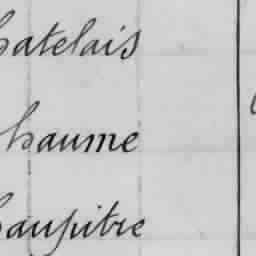 hatelais
haume
haupitre